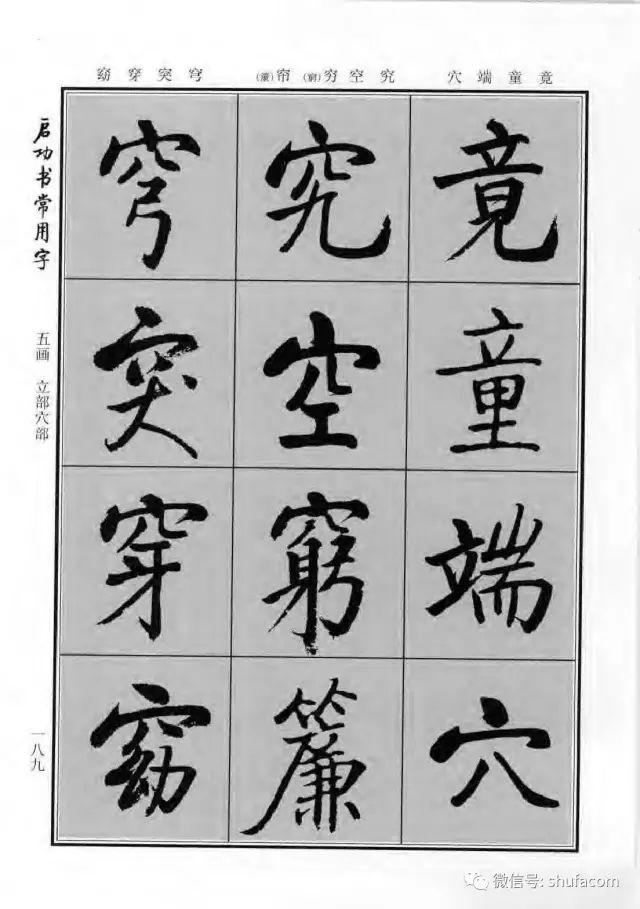 竟童端穴
究空穷(窮)帘(簾)
穹突穿窈
竟童端穴
究空窮簾
穹突穿窈
启功书常用字
五画 立部穴部
一八九
微信号: shufacom